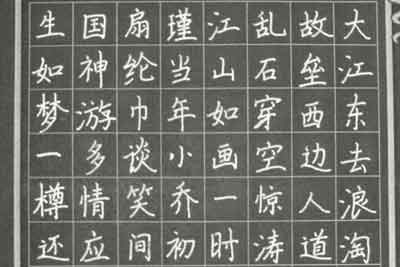 大江东去浪淘
故垒西边人道
乱石穿空惊涛
江山如画一时
瑾当年小乔初
扇纶巾谈笑间
国神游多情应
生如梦一樽还